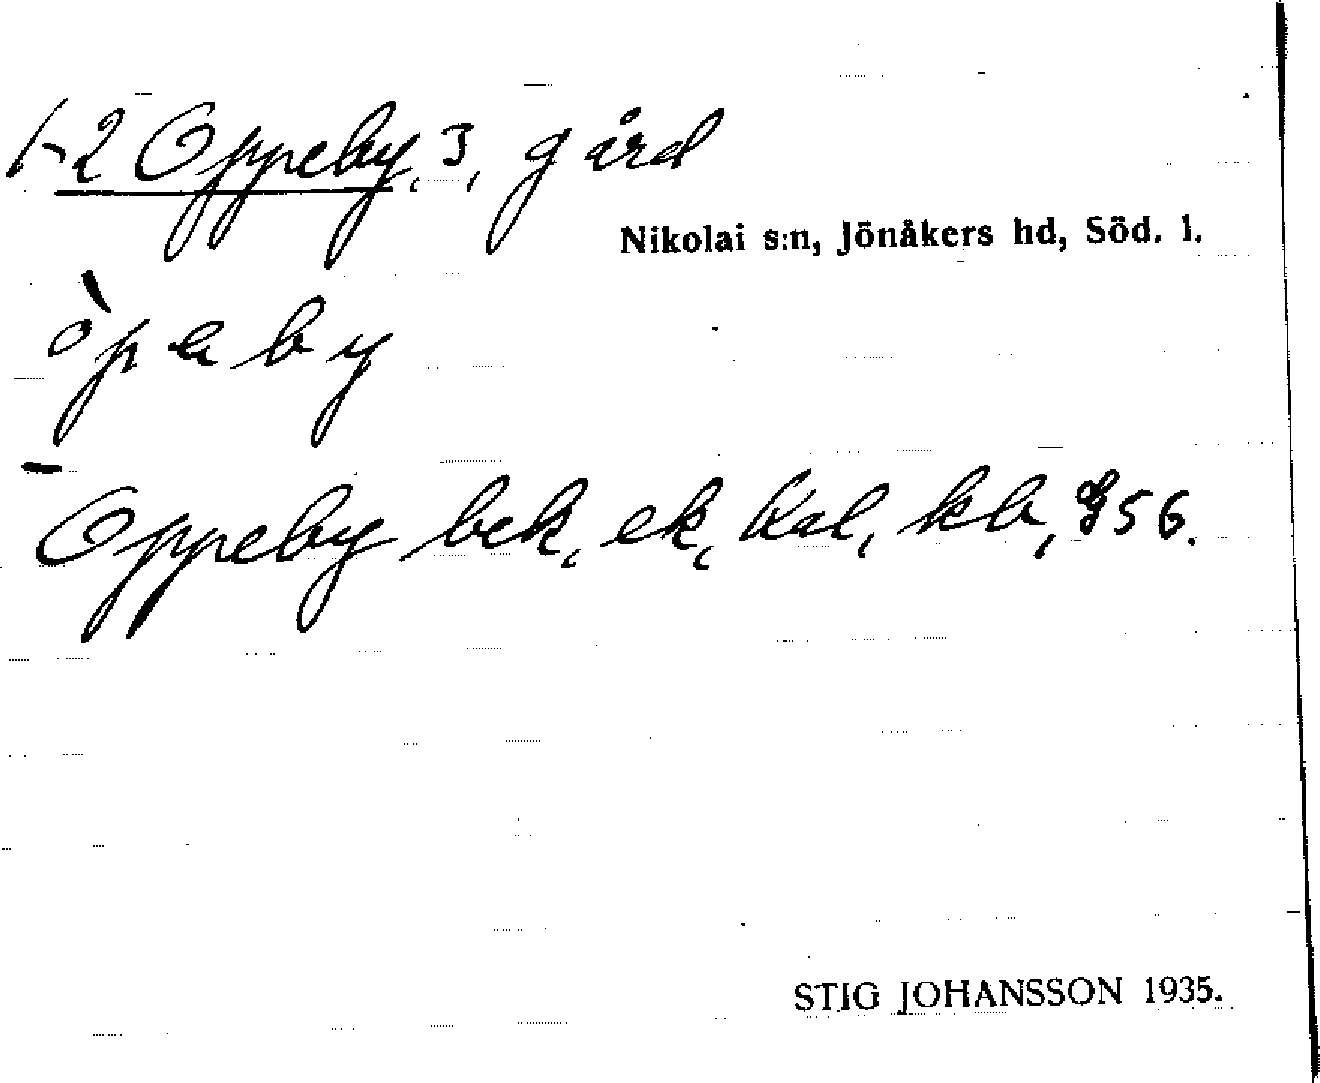 1-2 Oppeby, 3, gård
Nikolai s:n, Jönåkers hd, Söd. l.
òpeby
Oppeby bek, ek, kal, kb, §56.
STIG JOHANSSON 1935.